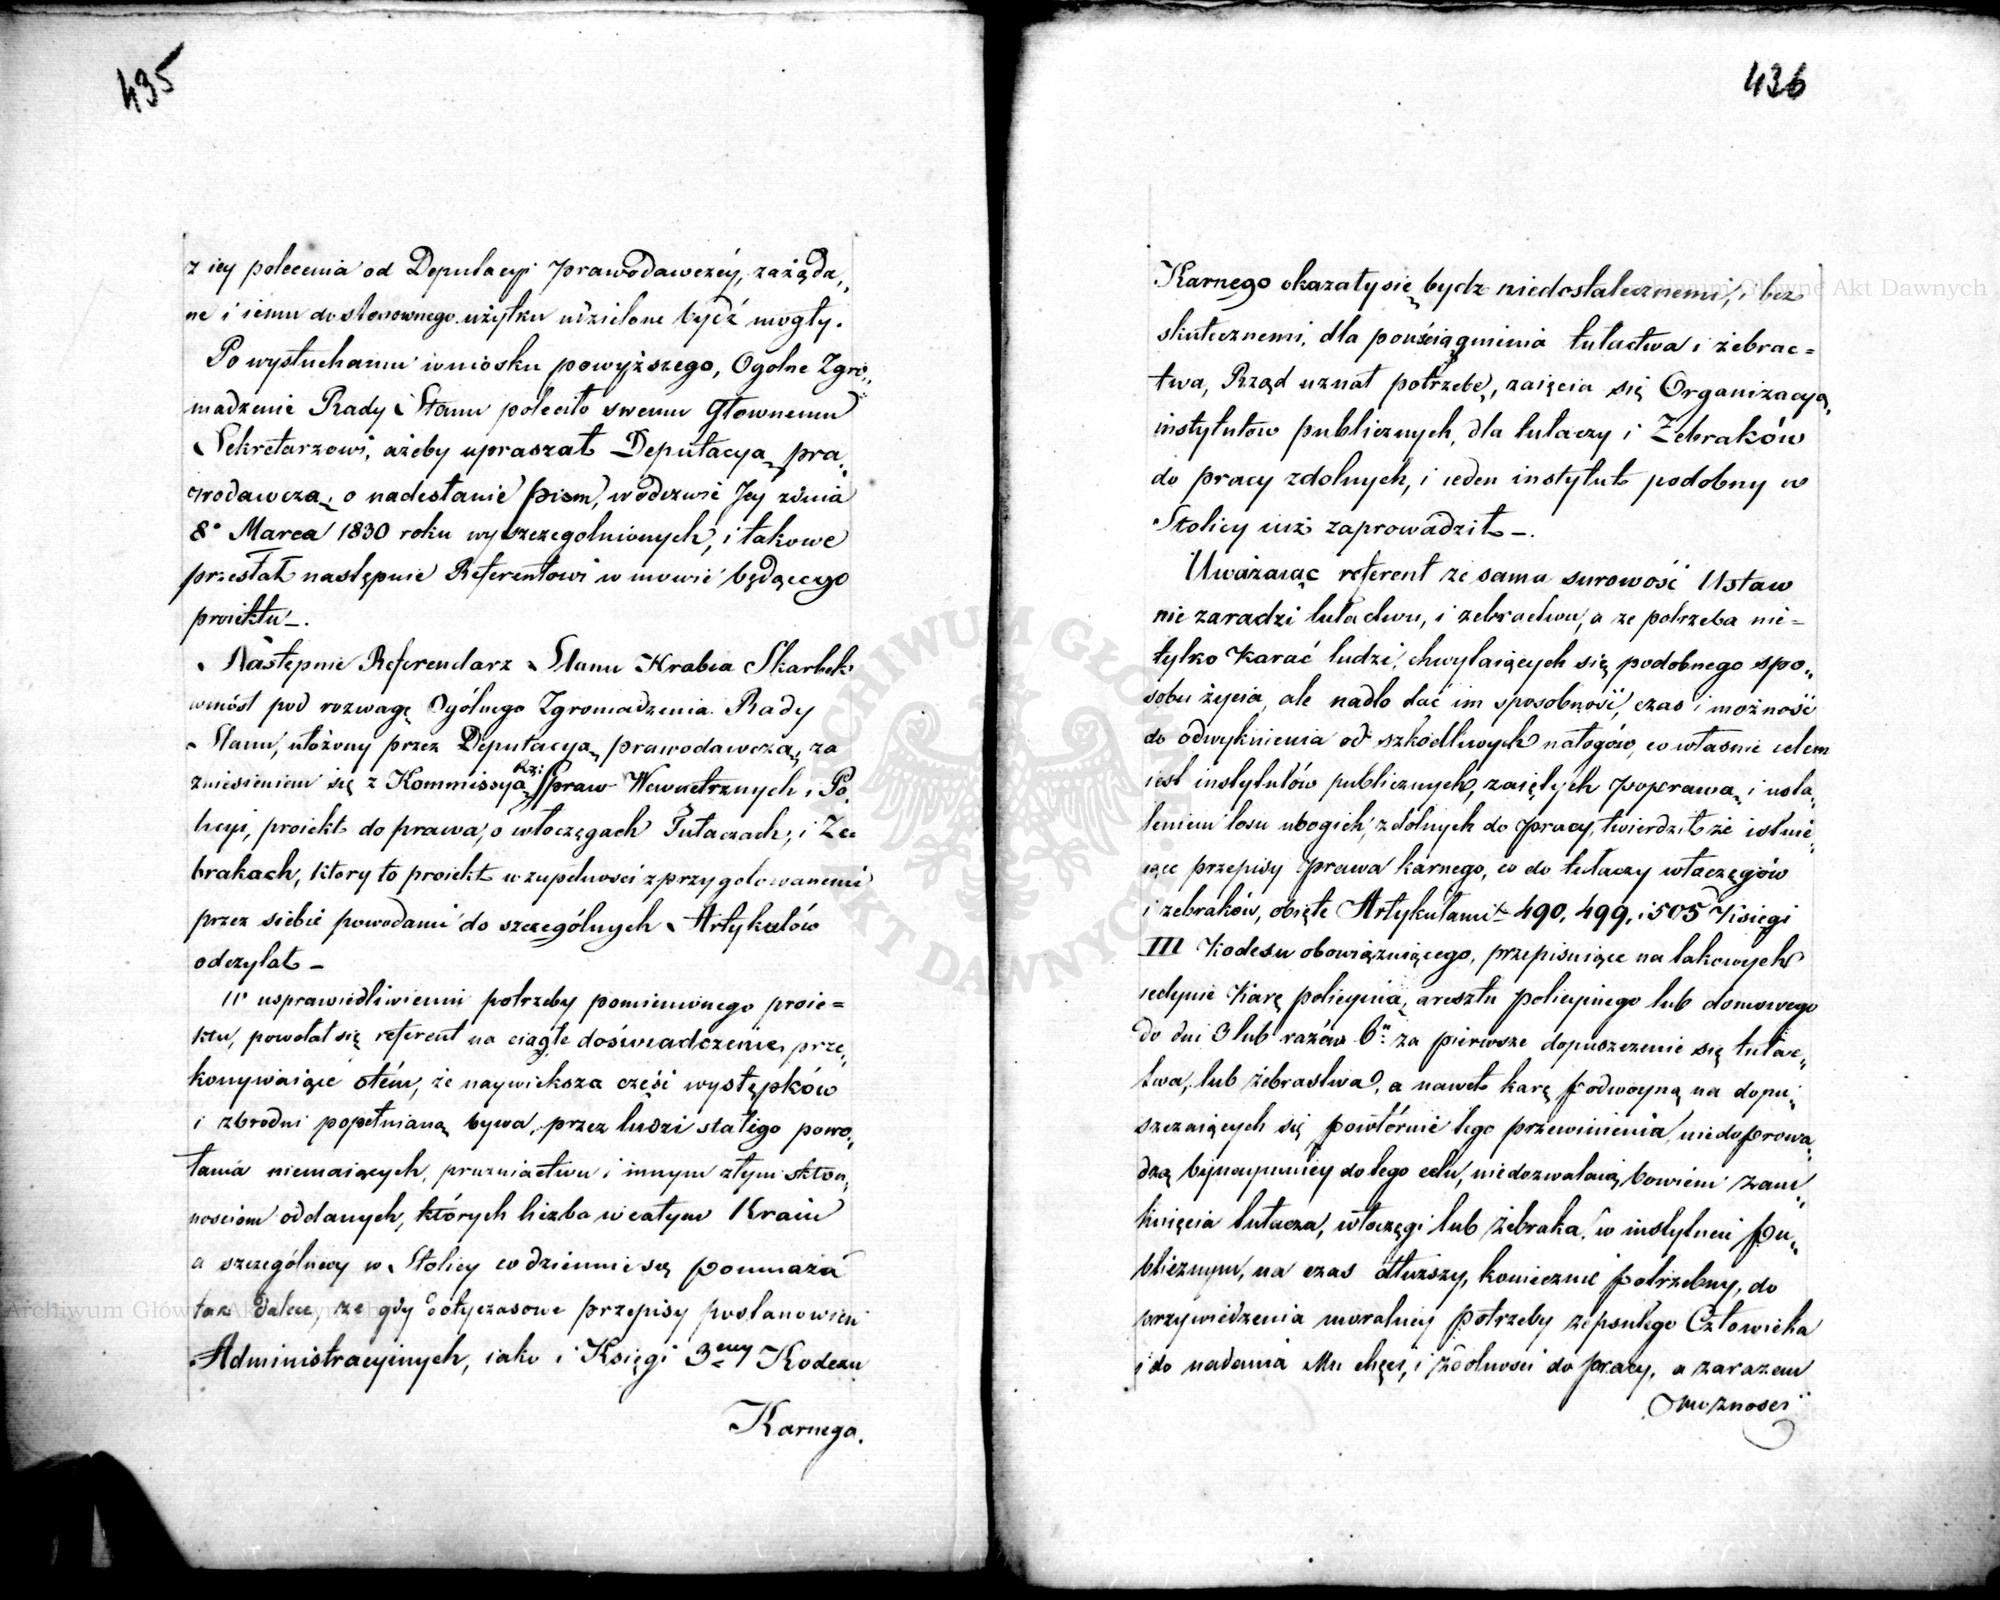 435
z iey polecenia od Deputacyi prawodawczéy, zażąda„
ne i iemu do stosownego użytku udzielone bydź mogły.
Po wysłuchaniu wniosku powyższego, Ogolne Zgro„
madzenie Rady Stanu poleciło swemu Głownemu
Sekretarzowi, ażeby upraszał Deputacyą pra„
wodawczą, o nadesłanie pism, w odezwie Jey z dnia
8º Marca 1830 roku wyszczegolnionych, i takowe
przesłał następnie Referentowi w mowie będącego
proiektu_.
Następnie Referendarz Stanu Hrabia Skarbek
wniósł pod rozwagę Ogólnego Zgromadzenia Rady
Stanu, ułożony przez Deputacyą prawodawczą, za
zniesieniem się z Kommissyą Rzą: Spraw Wewnętrznych i Po„
licyi, proiekt do prawa, o włoczęgach Tułaczach, i Że„
brakach, ktory to proiekt w zupełności z przygotowanemi
przez siebie powodami do szczególnych Artykułów
odczytał _
W usprawiedliwieniu potrzeby pomienionego proie=
ktu, powołał się referent na ciągłe doświadczenie, prze„
konywaiące o tém, że naywiększa część występków
i zbrodni popełnianą bywa, przez ludzi stałego powo„
łania niemaiących, prozniactwu i innym złym skłon„
nościom oddanych, których liczba w całym Kraiu
a szczególniey w Stolicy codziennie się pomnaża
tak dalece, że gdy dotyczasowe przepisy postanowień
Administracyinych, iako i Księgi 3ciey Kodexu
Karnego.
436
Karnego okazały się bydz niedostatecznemi, i bez
skutecznemi, dla powściągnienia tułactwa i żebrac=
twa, Rząd uznał potrzebę, zaięcia się Organizacyą
instytutow publicznych, dla tułaczy i Żebraków
do pracy zdolnych, i ieden instytut podobny w
Stolicy iuż zaprowadził _.
Uważaiąc referent ze sama surowość Ustaw
nie zaradzi tułactwu, i żebractwu, a ze potrzeba nie=
tylko karać ludzi, chwytaiących się podobnego spo„
sobu życia, ale nadto dać im sposobność, czas i możność
do odwyknienia od szkodliwych nałogów, co własnie celem
iest instytutów publicznych, zaiętych poprawą i usta„
leniem losu ubogich, zdolnych do pracy, twierdził że istnie„
iące przepisy prawa karnego, co do tułaczy włoczęgów
i żebraków, obięte Artykułami 490, 499, i 505 Księgi
III Kodexu obowiązuiącego, przepisuiące na takowych
iedynie Karę policyiną, aresztu policyinego lub domowego
do dni 3 lub razów 6 za pierwsze dopuszczenie się tułac„
twa, lub żebrastwa, a nawet karę podwoyną na dopu„
szczaiących się powtórnie tego przewinienia, niedoprowa„
dzą bynaymniey do tego celu, niedozwalaią bowiem zam„
knięcia tułacza, włoczęgi lub żebraka, w instytucie pu„
blicznym, na czas dłuższy, koniecznie potrzebny, do
przywiedzenia moralney potrzeby zepsutego Człowieka
i do nadania Mu chęci, i zdolności do pracy, a zarazem
możności